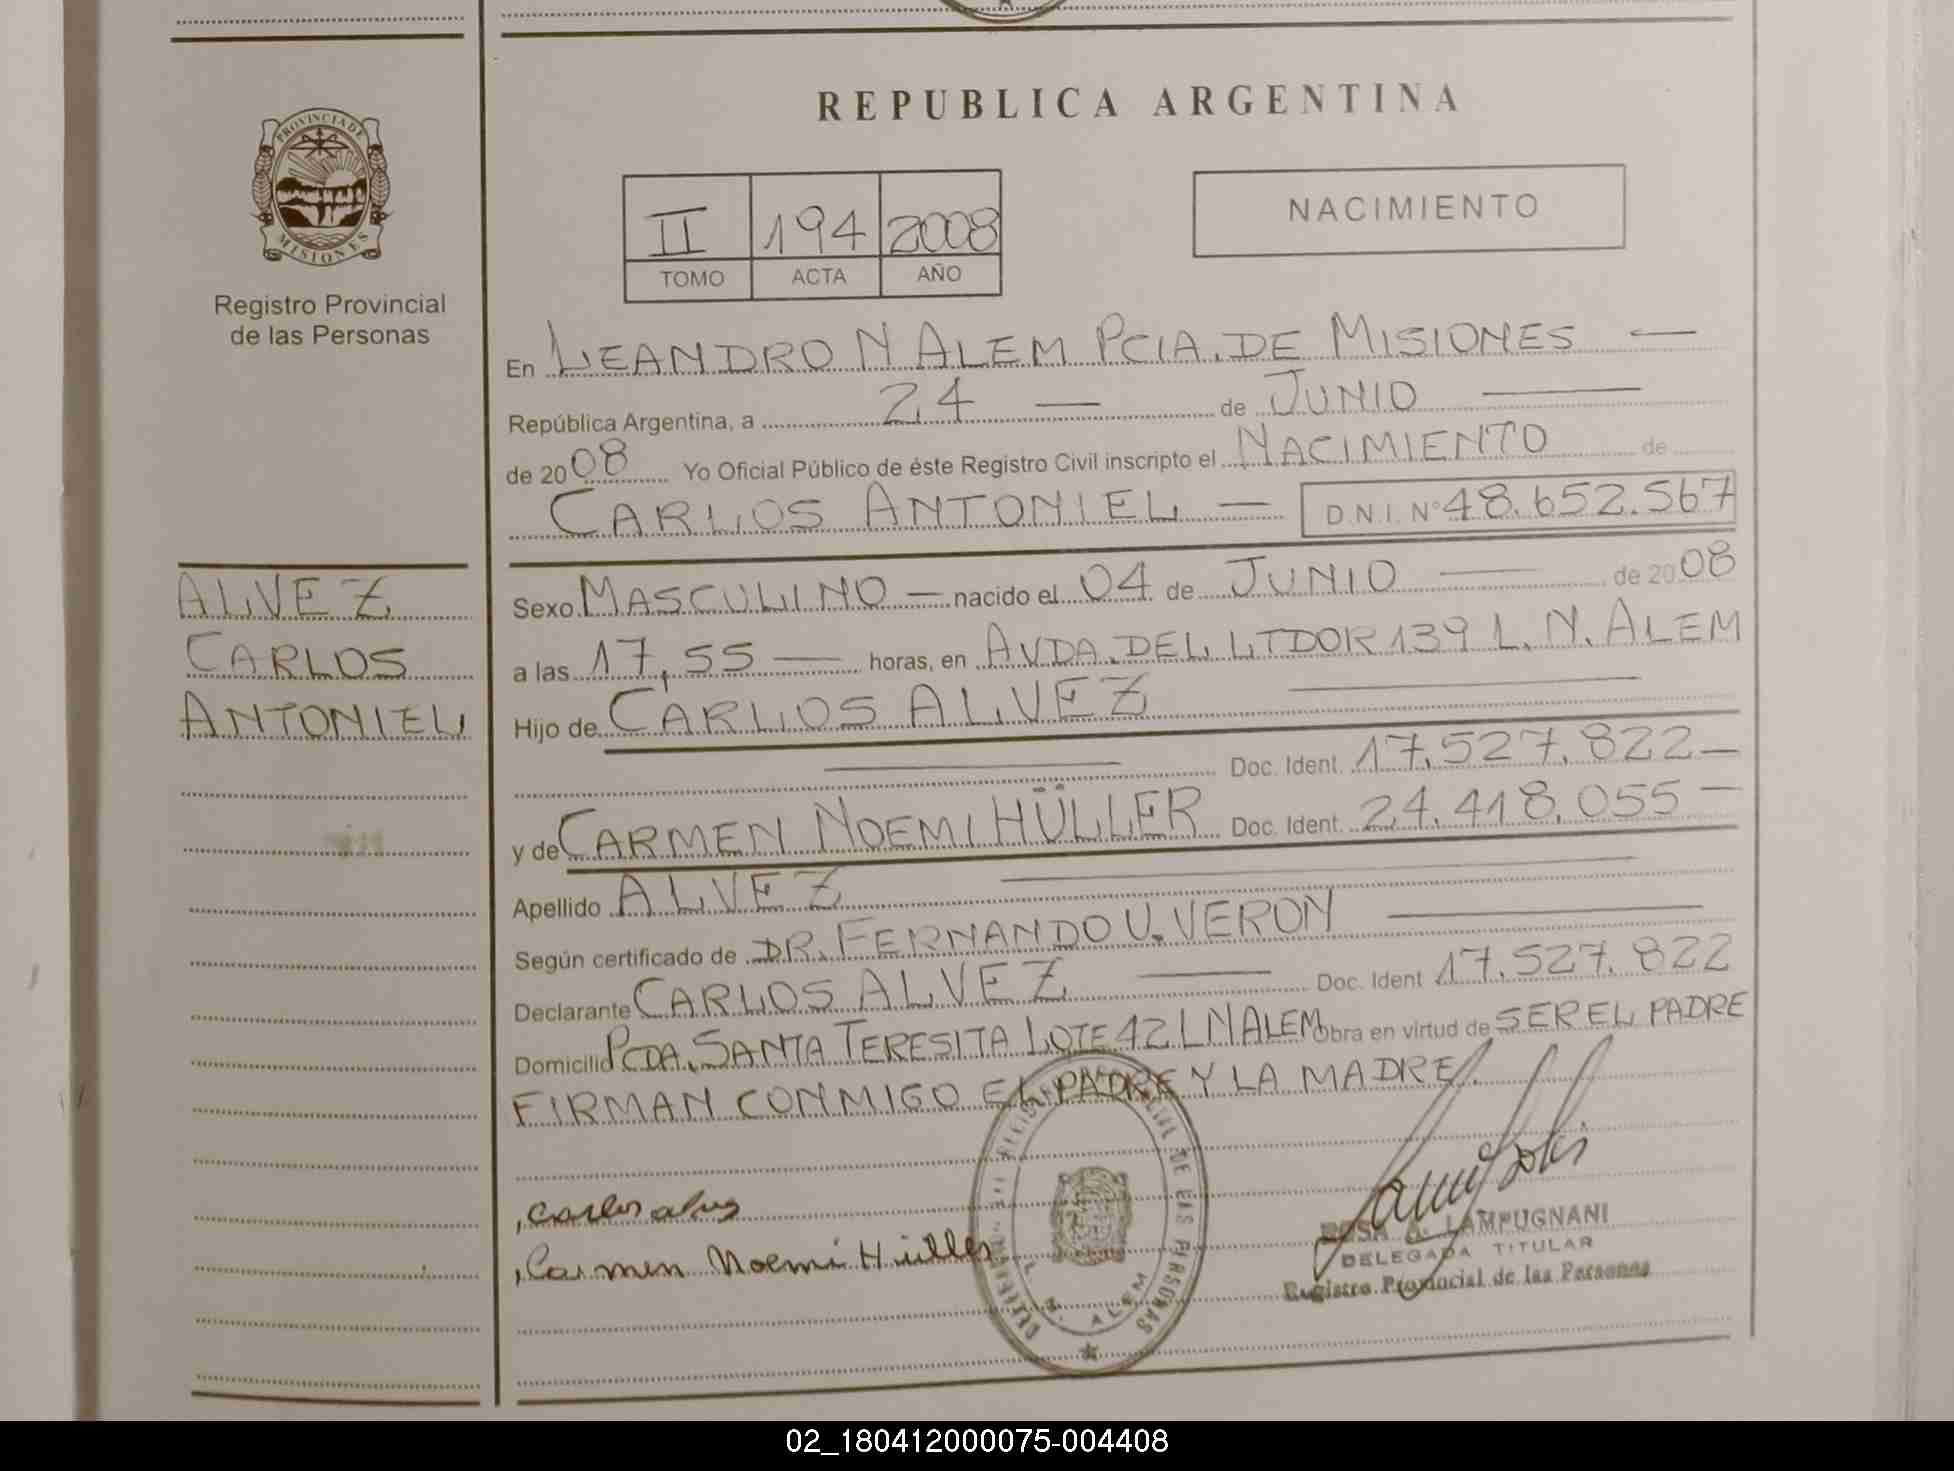 PROVINCIA DE
MISIONES
Registro Provincial
de las Personas
ALVEZ
CARLOS
ANTONIEL
REPUBLICA ARGENTINA
II 194 2008
TOMO ACTA AÑO
NACIMIENTO
En LEANDRO N ALEM PCIA. DE MISIONES —
República Argentina, a 24 — de JUNIO —
de 2008 Yo Oficial Público de éste Registro Civil inscripto el NACIMIENTO de
CARLOS ANTONIEL — D.N.I. N° 48.652.567
Sexo MASCULINO — nacido el 04 de JUNIO — de 2008
a las 17,55 — horas, en AVDA. DEL LTDOR 139 L. N. ALEM
Hijo de CARLOS ALVEZ —
— Doc. Ident. 17.527.822 —
y de CARMEN NOEMI HÜLLER Doc. Ident. 24.418.055 —
Apellido ALVEZ —
Según certificado de DR. FERNANDO U. VERON —
Declarante CARLOS ALVEZ — Doc. Ident 17.527.822
Domicilio PCDA. SANTA TERESITA LOTE 42 L N ALEM Obra en virtud de SER EL PADRE
FIRMAN CONMIGO EL PADRE Y LA MADRE.
Carlos alvez
Carmen Noemi Hüller
DE LAS PERSONAS
L. N. ALEM
ROSA A. LAMPUGNANI
DELEGADA TITULAR
Registro Provincial de las Personas
02_180412000075-004408